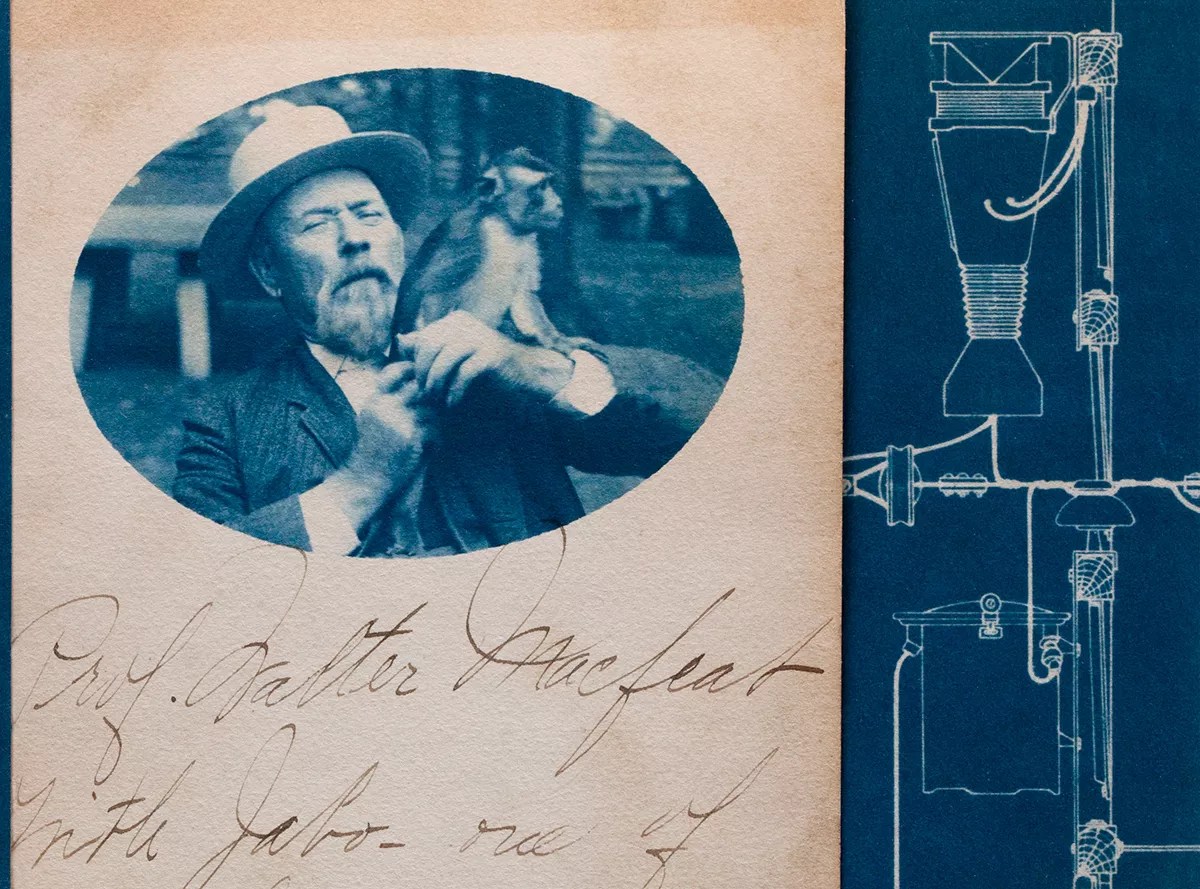 Prof. Walter Macfeat
with Jabo - one of